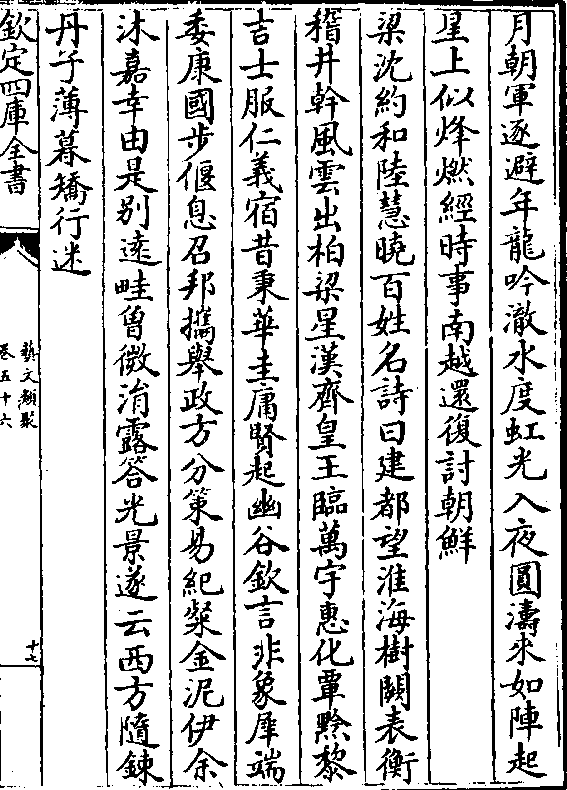 月朝軍逐避年龍吟澈水度虹光入夜圓濤來如陣起
星上似烽燃經時事南越還復討朝鮮
梁沈約和陸慧曉百姓名詩曰建都望淮海樹闕表衡
稽井幹風雲出柏梁星漢齊皇王臨萬宇惠化覃黔黎
吉士服仁義宿昔秉華圭庸賢起幽谷欽言非象犀端
委康國步偃息召邦攜舉政方分策易紀粲金泥伊余
沐嘉幸由是别逺畦曽微涓露答光景遂云西方隨鍊
丹子薄暮矯行迷
欽定四庫全書
藝文類聚
卷五十六
十七